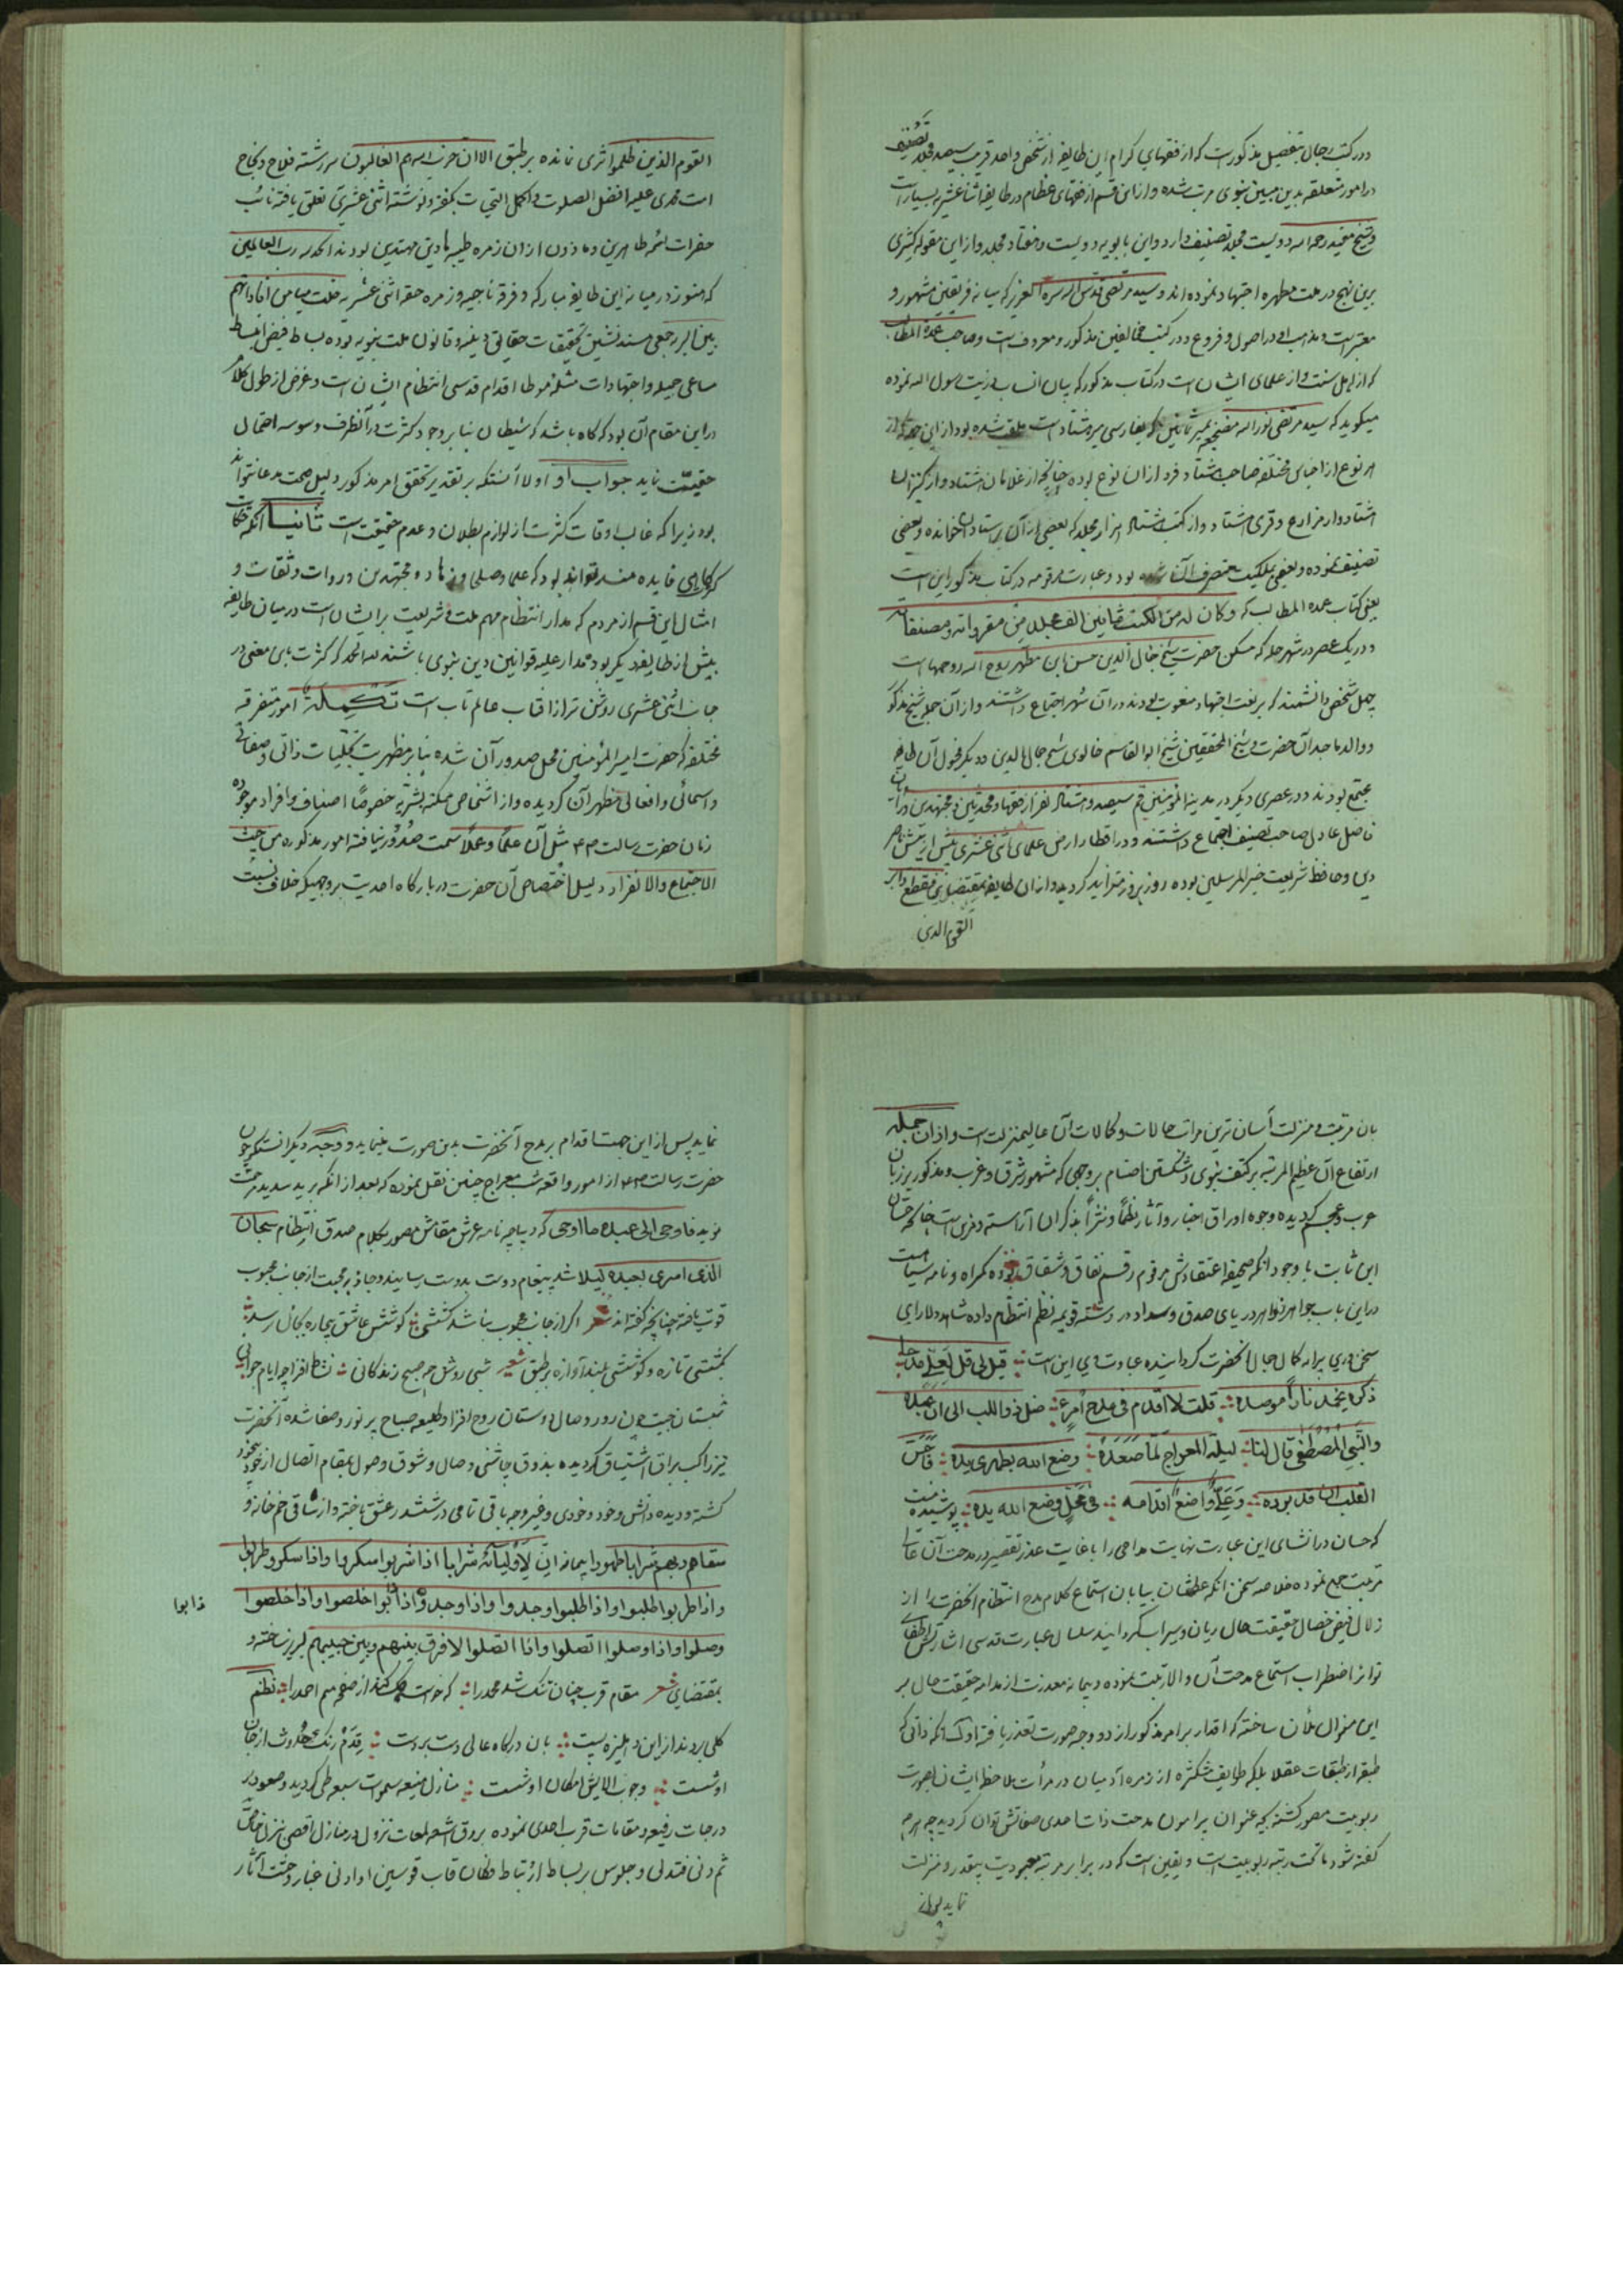 و در کتب رجال بتفصیل مذکورست که از فقهای کرام این طایفه از شخص واحد قریب سیصد مجلد تصنیف
در امور متعلقه بدین مبین نبوی مرتب شده و از این قسم از فقهای عظام در طایفه اثنا عشریه بسیارست
و شیخ مفید رحمه الله دویست مجلد تصنیف دارد و ابن بابویه دویست و هفتاد مجلد و از این مقوله کثیری
برین نهج در ملت مطهره اجتهاد نموده اند و سید مرتضی قدس الله سره العزیز که میانه فریقین مشهور و
معتبر است و مذهب او در اصول و فروع و در کتب مخالفین مذکور و معروفست و صاحب عمدة المطالب
که از اهل سنت و از علمای ایشان است در کتاب مذکور که بیان انساب ذریت رسول الله نموده
میگوید که سید مرتضی نور الله مضجعه بثمانین که بفارسی هشتاد است ملقب شده بود از این جهة که از
هر نوع از اجناس مختلفه صاحب هشتاد فرد از ان نوع بوده چنانچه از غلامان هشتاد و از کنیزان
هشتاد و از مزارع و قری هشتاد و از کتب هشتاد هزار مجلد که بعضی از آن بر استادان خوانده و بعضی
تصنیف نموده و بعضی بملکیت متصرف آن شده بود و عبارت مرقومه در کتاب مذکور این است
یعنی کتاب عمده المطالب که و کان له من الکتب ثمانین الف مجلد من مقرواته و مصنفاته
و در یک عصر در شهر حله که مسکن حضرت شیخ جمال الدین حسن ابن مطهر روح الله روحهاست
چهل شخص دانشمند که برتبت اجتهاد منعوت بودند در آن شهر اجتماع داشتند و از آن جمله شیخ مذکور
و والد ماجد آن حضرت و شیخ المحققین شیخ ابو القاسم خالوی شیخ جمال الدین و دیگر فحول آن طایفه
مجتمع بودند و در عصری دیگر در مدینة المؤمنین قم سیصد و هشتاد نفر از فقها و محدثین و مجتهدین و راویان
فاضل عادل صاحب تصنیف اجتماع داشتند و در اقطار ارض علمای اثنی عشری بیش از پیش ناصر
دین و حافظ شریعت خیر المرسلین بوده روز بروز متزاید گردید و از ان طایفه بمقتضای فقطع دابر
القوم الذین
القوم الذین ظلموا اثری نمانده بر طبق الا ان حزب الله هم الغالبون سررشته فلاح و نجاح
امت محمدی علیه افضل الصلوات و اکمل التحیات بگفته و نوشته اثنی عشری تعلق یافته نائب
حضرات ائمه طاهرین و ماذون از ان زمره طیبه هادین مهتدین بودند الحمد لله رب العالمین
که هنوز در میانه این طایفه مبارکه و فرقه ناجیه و زمره حقه اثنی عشریه خلت میامن افاداتهم
بین البریه جمعی مسند نشین تحقیقات حقایق دینیه و قانون ملت نبویه بوده بساط فیض انبساط
مساعی جمیله و اجتهادات مشکوره موطا اقدام قدسی انتظام ایشان است و غرض از طول کلام
در این مقام آن بود که گاه باشد که شیطان بنا بر وجود کثرت در آنطرف وسوسه احتمال
حقیّت نماید جواب او اولا آنستکه بر تقدیر تحقق امر مذکور دلیل صحت مدعا نتواند
بود زیرا که غالب اوقات کثرت از لوازم بطلان و عدم حقیقت است ثانیا آنکه
گاهی فایده مند تواند بود که علما و صلحا و زهاد و مجتهدین و روات و ثقات و
امثال این قسم از مردم که مدار انتظام مهم ملت و شریعت بر ایشان است در میان طایفه
بیش از طایفه دیگر بوده مدار علیه قوانین دین نبوی باشند لله الحمد که کثرت باین معنی در
جانب اثنی عشری روشن تر از افتاب عالم تاب است تکملة امور متفرقه
مختلفه که حضرت امیر المؤمنین محل صدور آن شده بنا بر مظهریت تجلیات ذاتی و صفاتی
و اسمائی و افعالی مظهر آن گردیده و از اشخاص ممکنه بشریه خصوصا اصناف و افراد موجوده
زمان حضرت رسالت ۲۴ مثل آن علماً و عملاً سمت صدور نیافته امور مذکوره من حیث
الاجتماع و الانفراد دلیل اختصاص آن حضرت دربارگاه احدیت بر وجهیکه خلافت نسبت
بان مرتبت و منزلت آسان ترین مراتب حالات و کمالات آن عالیمنزلت است و از ان جمله
ارتفاع آن عظیم المرتبه بر کتف نبوی و شکستن اصنام بر وجهی که مشهور شرق و غرب و مذکور بر زبان
عرب و عجم گردیده وجوه اوراق اخبار و آثار نظماً و نثراً بذکر ان آراسته و مزین است چنانکه حسان
ابن ثابت با وجود انکه صحیفه اعتقادش مرقوم رقم نفاق و شقاق بوده گمراه و نامه سیاهست
در این باب جواهر زواهر دریای صدق و سداد در رشته قویمه نظم انتظام داده شاهد دلارای
سخن وری براه کمال جمال آنحضرت گردانیده عبارت وی این است قیل لی قل لعلی مدحا
ذکره یخمد نارا موصده قلت لا اقدم فی مدح امرء ضل ذو اللب الی ان عبده
و النبی المصطفی قال لنا لیلة المعراج لما صعده وضع الله بظهری یده فاحس
القلب ان قد برده و علی واضع اقدامه فی محل وضع الله یده پوشیده نیست
که حسان در انشای این عبارت نهایت مداحی را با غایت عذر تقصیر در مدحت آن عالی
مرتبت جمع نموده خلاصه سخن انکه عطشان بیابان استماع کلام مدح انتظام آنحضرت را از
زلال فیض خصال حقیقت حال ریان و سیراب گردانیده سلسال عبارت قدسی اشارتش اطفای
نوایر اضطراب استماع مدحت آن والا رتبت نموده و بیانه معذرت از مدایح حقیقت حال بر
این منوال ملأن ساخته که اقدام بر امر مذکور از دو وجه صورت تعذر یافته اول آنکه ذاتی که
طبقه از طبقات عقلا بلکه طوایف متکثره از زمره آدمیان در مرأت ملاحظه ایشان بصورت
ربوبیت مصور گشته بچه عنوان پیرامون مدحت ذات احدی صفاتش توان گردید چه هرچه
گفته شود ماتحت رتبه ربوبیت است و یقین است که در برابر مرتبه معبودیت بیقدر و منزلت
نماید پس از
نماید پس از این جهت اقدام بر مدح آنحضرت بدین صورت مینماید و وجه دیگر انستکه چون
حضرت رسالت ۲۴ از امور واقعه شب معراج چنین نقل نموده که بعد از انکه برید سدید مرحمت
نوید فاوحی الی عبده ما اوحی که دیباچه نامه عرش مقامش مصور بکلام صدق انتظام سبحان
الذی اسری بعبده لیلا شد پیغام دوست بدوست رسانید و جاذبه محبت از جانب محبوب
قوت یافته چنانچه گفته اند شعر اگر از جانب محبوب نباشد کششی کوشش عاشق بیچاره بجائی نرسد
بکششی تازه و کوششی بلند آوازه بر طبق شعر شبی روشن چو صبح زندگانی نشاط افزا چو ایام جوانی
شبستان جیت چون روز وصال دوستان روح افزا و طلیعه صباح پر نور و صفا شده آنحضرت
نیز راکب براق اشتیاق گردیده بذوق چاشنی وصال و شوق وصول بمقام اتصال از خود بیخود
گشته و دیده دانش و خرد و خودی و غیر وجه باقی تمامی در ششدر عشق باخته و از ساقی خم خانه و
سقاهم ربهم شرابا طهورا پیمانه ان لاولیائه شرابا اذا شربوا سکروا و اذا سکروا طربوا
و اذا طربوا طلبوا و اذا طلبوا وجدوا و اذا وجدوا ذابوا خلصوا و اذا خلصوا
ذابوا
وصلوا و اذا وصلوا اتصلوا و اذا اتصلوا لا فرق بینهم و بین حبیبهم لبریز ساخته و
بمقتضای شعر مقام قرب چنان تنگ شد محمد را که خواست حک کند از صفحه میم احمد را نظم
کلی بردند از این دهلیزه پست بان درگاه عالی دست بر دست قدم رنگ حدوث از جان
او شست وجوب الایش امکان او شست منازل منیعه سموات سبعه طی گردید و صعود بر
درجات رفیعه و مقامات قرب احدی نموده بروق اشعه لمعات نزول در منازل اقصی تنزل خاص
ثم دنی فتدلی و جلوس بر بساط ارتباط فکان قاب قوسین او ادنی غبار وحشت آثار